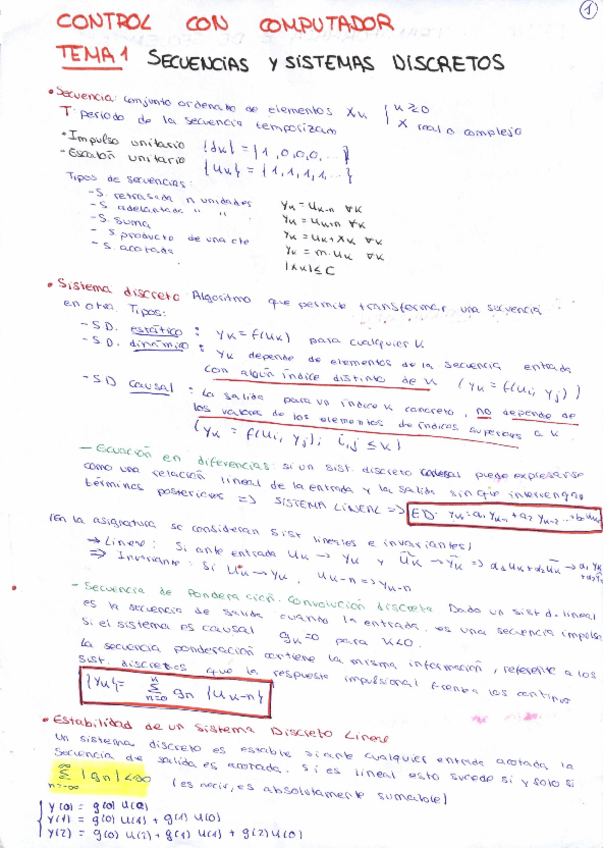 1
CONTROL CON COMPUTADOR
TEMA 1 SECUENCIAS Y SISTEMAS DISCRETOS
• Secuencia: conjunto ordenado de elementos Xk { k≥0
X real o complejo
T: periodo de la secuencia temporizam
• Impulso unitario {dk} = {1,0,0,0,...}
- Escalón unitario {Uk} = {1,1,1,1,...}
Tipos de secuencias:
- S. retrasada n unidades Yk = Uk-n ∀k
- S. adelantada " " Yk = Uk+n ∀k
- S. suma Yk = Uk + Xk ∀k
- S. producto de una cte Yk = m·Uk ∀k
- S. acotada |Xk| ≤ C
• Sistema discreto Algoritmo que permite transformar una secuencia
en otra. Tipos:
- SD. estático: Yk = f(Uk) para cualquier k
- SD. dinámico: Yk depende de elementos de la secuencia entrada
con algún índice distinto de k (Yk = f(Ui, Yj))
- SD causal: La salida para un índice k concreto, no depende de
los valores de los elementos de índices superiores a k.
(Yk = f(Ui, Yj); i,j ≤ k)
- Ecuación en diferencias: si un sist. discreto puede expresarse
como una relación lineal de la entrada y la salida sin que intervengan
términos posteriores => SISTEMA LINEAL => ED: Yk = a1 Yk-1 + a2 Yk-2 ...
(En la asignatura se consideran sist lineales e invariantes)
→ Lineal: Si ante entrada Uk → Yk y Ũk → Ỹk => a1Uk + a2Ũk → a1Yk + a2Ỹk
=> Invariante: Si Uk → Yk, Uk-n => Yk-n
- Secuencia de Ponderación. Convolución discreta Dado un sist d. lineal
es la secuencia de salida cuando la entrada es una secuencia impulso
Si el sistema es causal gk=0 para k<0.
La secuencia ponderación contiene la misma información, referente a los
sist. discretos que la respuesta impulsional frente a los continuos
{Yk} = Σ n=0 gn {Uk-n}
• Estabilidad de un Sistema Discreto Lineal
Un sistema discreto es estable si ante cualquier entrada acotada la
secuencia de salida es acotada. Si es lineal esto sucede si y solo si
∞ Σ n=-∞ |gn| < ∞ (es decir, es absolutamente sumable)
{ y(0) = g(0) u(0)
y(1) = g(0) u(1) + g(1) u(0)
y(2) = g(0) u(2) + g(1) u(1) + g(2) u(0)